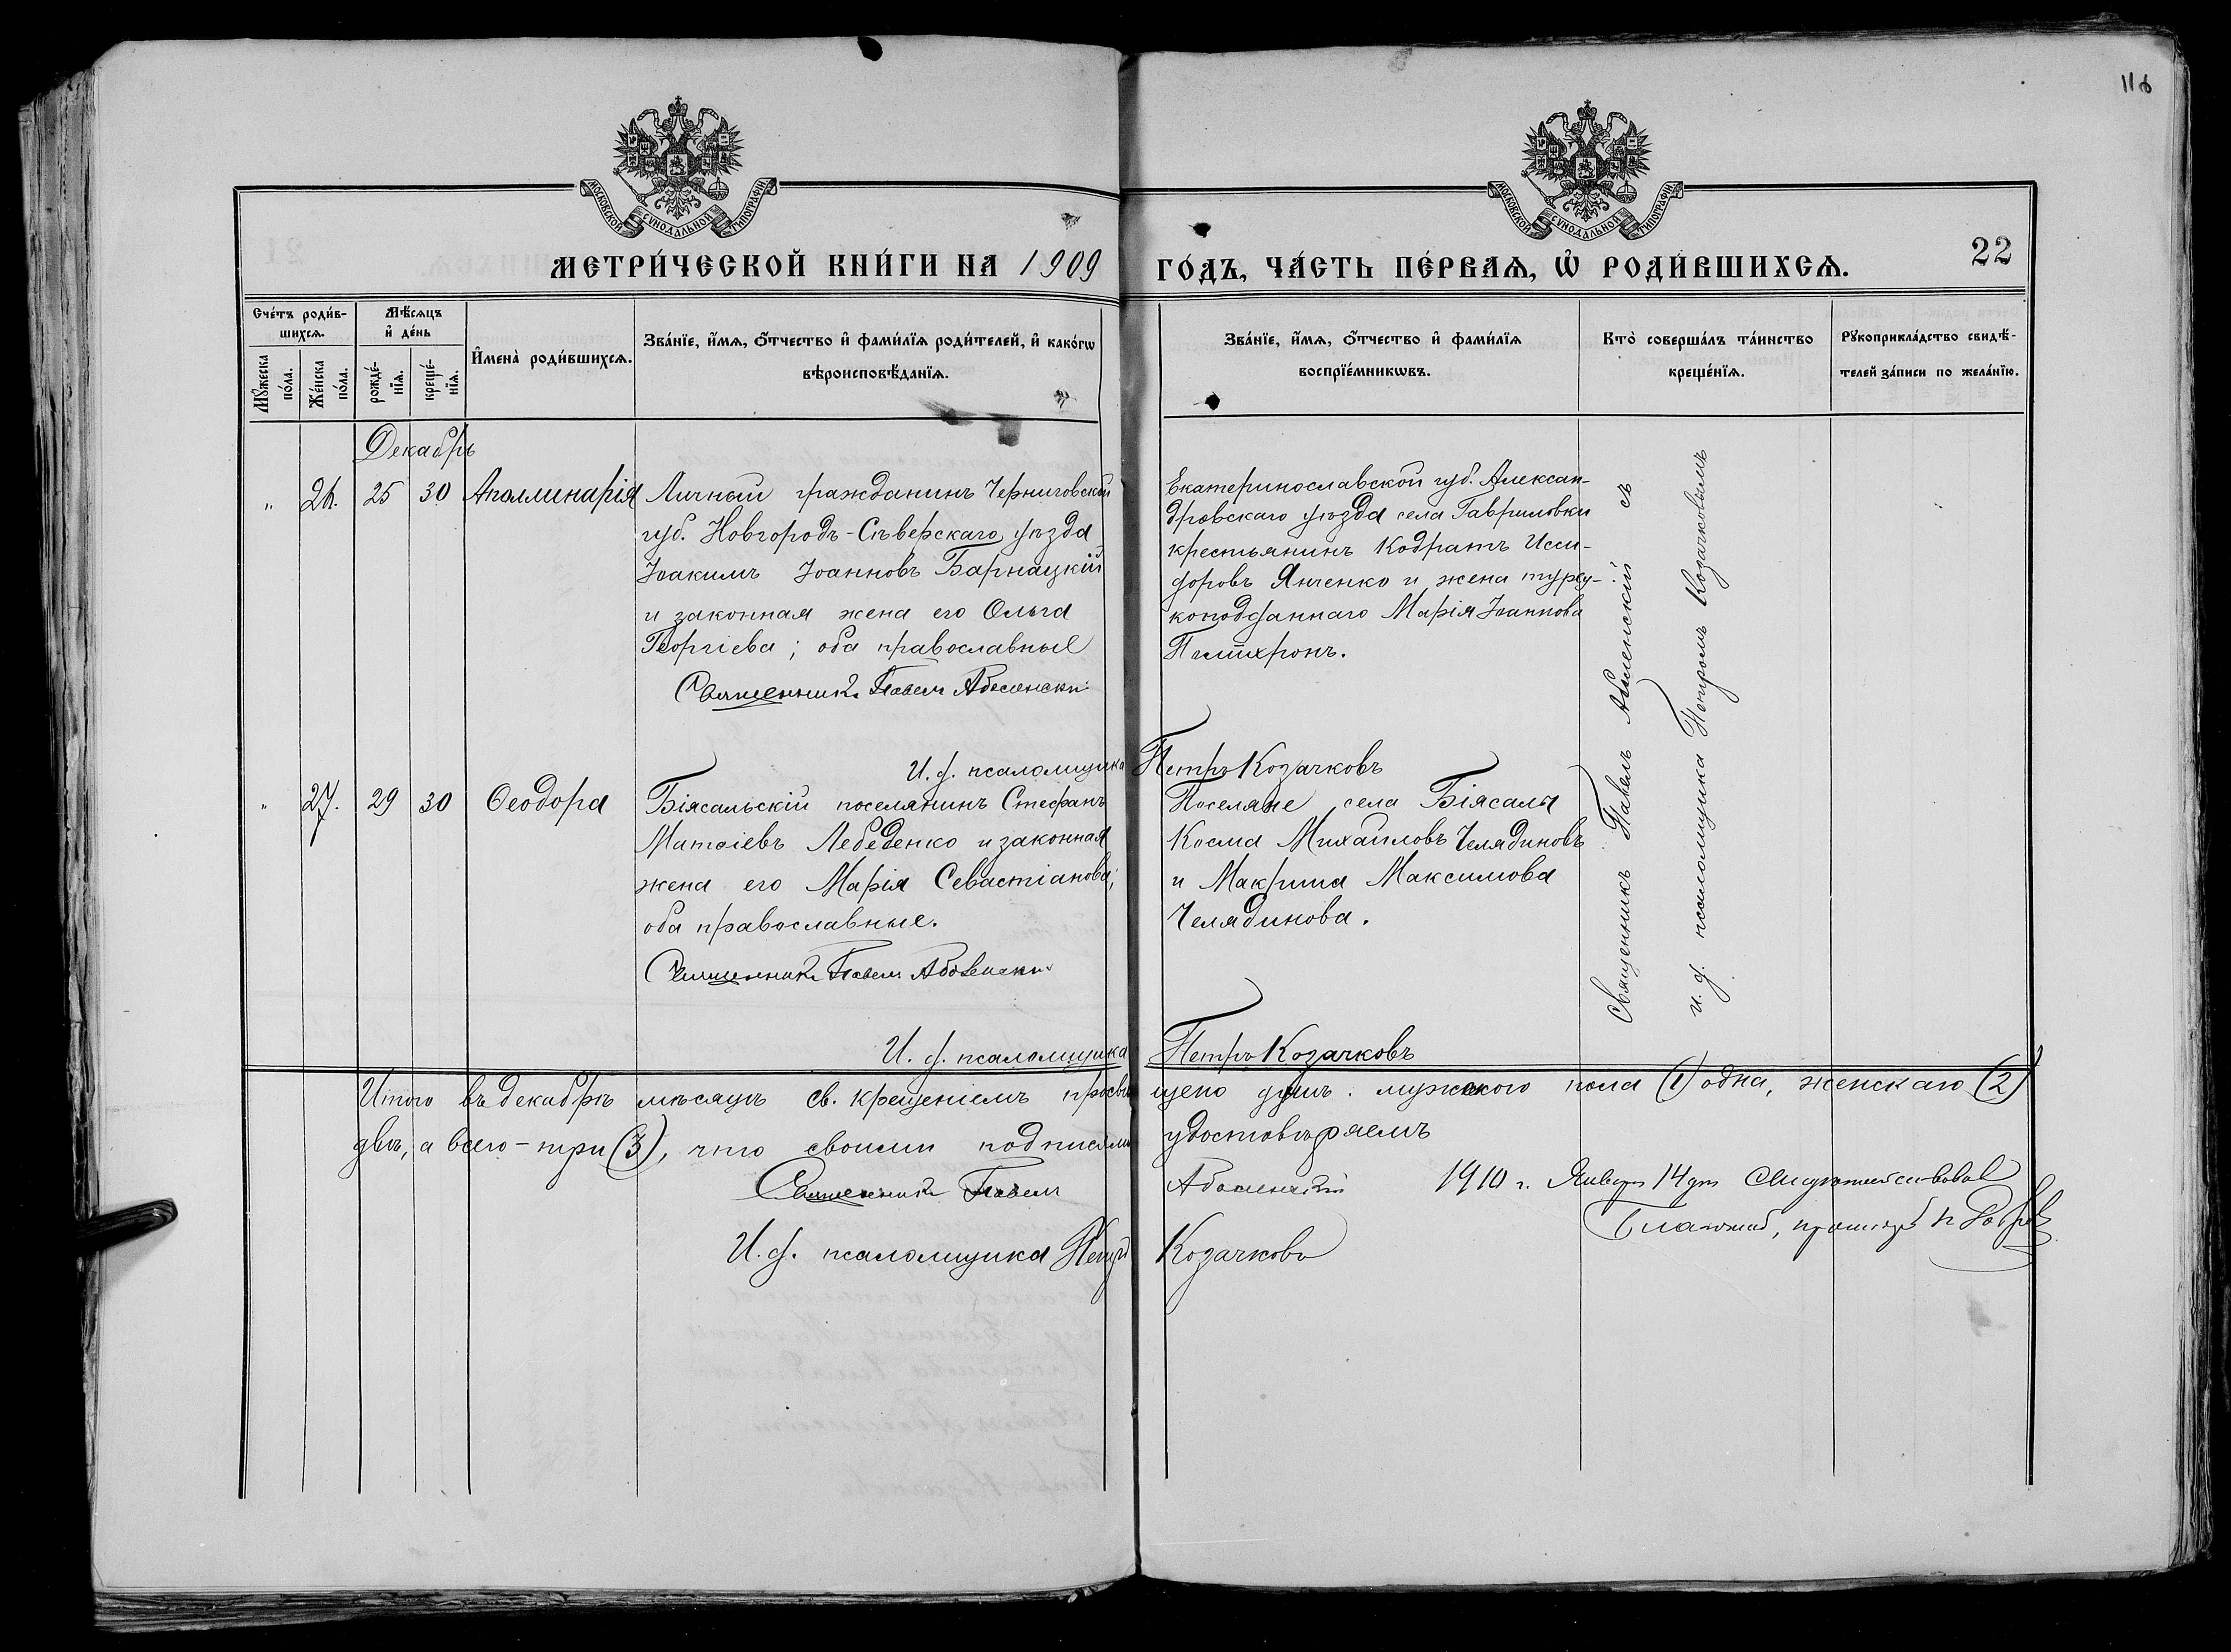 116
МОСКОВСКОЙ СѴНОДАЛЬНОЙ ТИПОГРАФІИ
МОСКОВСКОЙ СѴНОДАЛЬНОЙ ТИПОГРАФІИ
МЕТРИ́ЧЕСКОЙ КНИ́ГИ НА 1909
ГО́ДЪ, ЧА́СТЬ ПЕ́РВАѦ, Ѽ РОДИ́ВШИХСѦ.
22
Сче́тъ роди́в-
шихсѧ.
Мꙋ́жеска
по́ла.
Же́нска
по́ла.
Мѣ́сѧцъ
и҆ де́нь
рожде́-
нїѧ.
креще́-
нїѧ.
И҆мена̀ роди́вшихсѧ.
Зва́нїе, и҆́мѧ, ѻ҆́тчество и҆ фами́лїѧ роди́телей, и҆ како́гѡ
вѣроисповѣ́данїѧ.
Зва́нїе, и҆́мѧ, ѻ҆́тчество и҆ фами́лїѧ
воспрїе́мникѡвъ.
Кто̀ соверша́лъ та́инство
креще́нїѧ.
Рꙋкоприкла́дство свидѣ́-
телей за́писи по жела́нїю.
Декабрь
" 26. 25 30 Аполлинарія
Личный гражданинъ Черниговской
губ. Новгородъ-Сѣверскаго уѣзда
Іоакимъ Іоанновъ Барнацкій
и законная жена его Ольга
Георгіева; оба православные
Священникъ Павелъ Абаменскій
И. д. псаломщика Петръ Козачковъ
Екатеринославской губ. Алексан-
дровскаго уѣзда села Гавриловки
крестьянинъ Кодратъ Исси-
доровъ Янченко и жена турец-
коподданнаго Марія Іоаннова
Священникъ Павелъ Абаменскій съ
и. д. псаломщика Петромъ Козачковымъ
" 27. 29 30 Ѳеодора
Біясальскій поселянинъ Стефанъ
Матѳіевъ Лебеденко и законная
жена его Марія Севастіанова;
оба православные.
Священникъ Павелъ Абаменскій
И. д. псаломщика Петръ Козачковъ
Поселяне села Біясалы
Косма Михаиловъ Челядиновъ
и Макрина Максимова
Челядинова.
Итого въ декабрѣ мѣсяцѣ св. крещеніемъ просвѣщено душъ: мужского пола (1) одна, женскаго (2)
двѣ, а всего - три (3), что своими подписями удостовѣряемъ
Священникъ Павелъ Абаменскій
И. д. псаломщика Петръ Козачковъ
1910 г. Января 14 дня Свидѣтельствовалъ